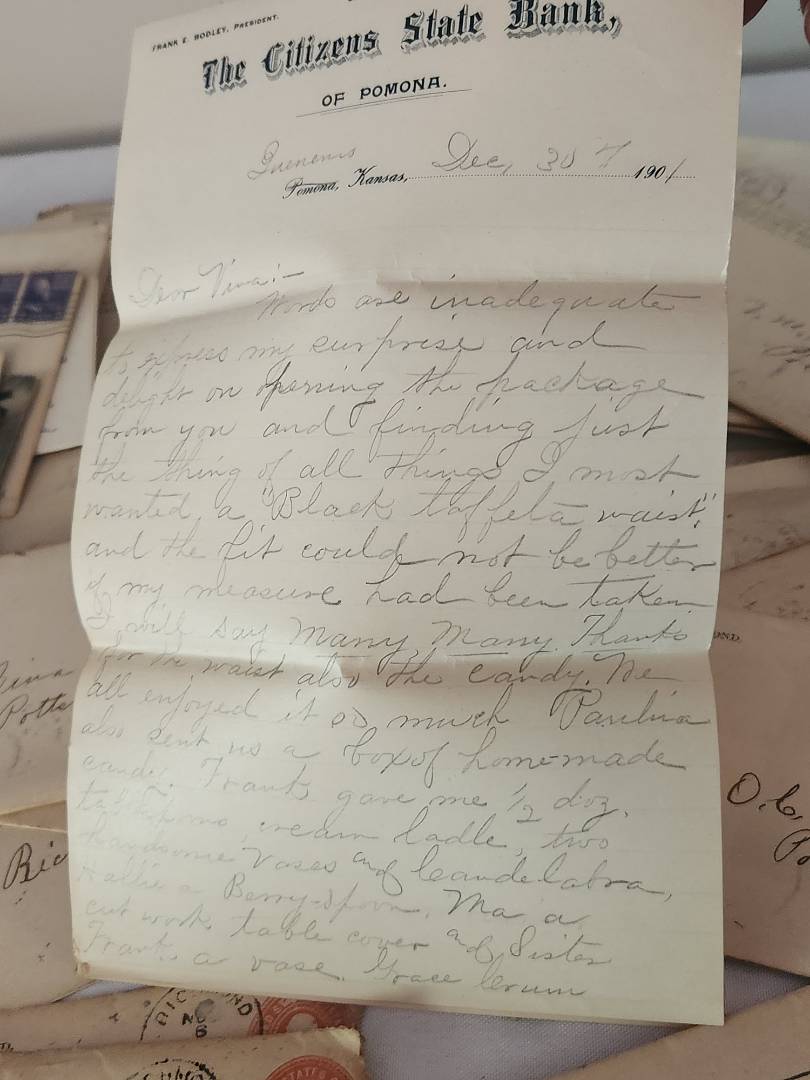 FRANK E. BODLEY, PRESIDENT.
The Citizens State Bank,
OF POMONA.
Quenemo
Pomona, Kansas, Dec, 30 1901
Dear Viva:-
Words are inadequate
to express my surprise and
delight on opening the package
from you and finding just
the thing of all things I most
wanted, a "Black taffeta waist",
and the fit could not be better
if my measure had been taken
I will say Many, Many Thanks
for the waist also the candy. We
all enjoyed it so much Paulina
also sent us a box of home-made
candy. Frank gave me 1/2 doz.
tablespoons, cream ladle, two
handsome vases and Candelabra,
Hallie a Berry-spoon, Ma a
cut work table cover and Sister
Frank a vase. Grace
Viva
Potte
Ric
O. C.
Po
RICHMOND
6